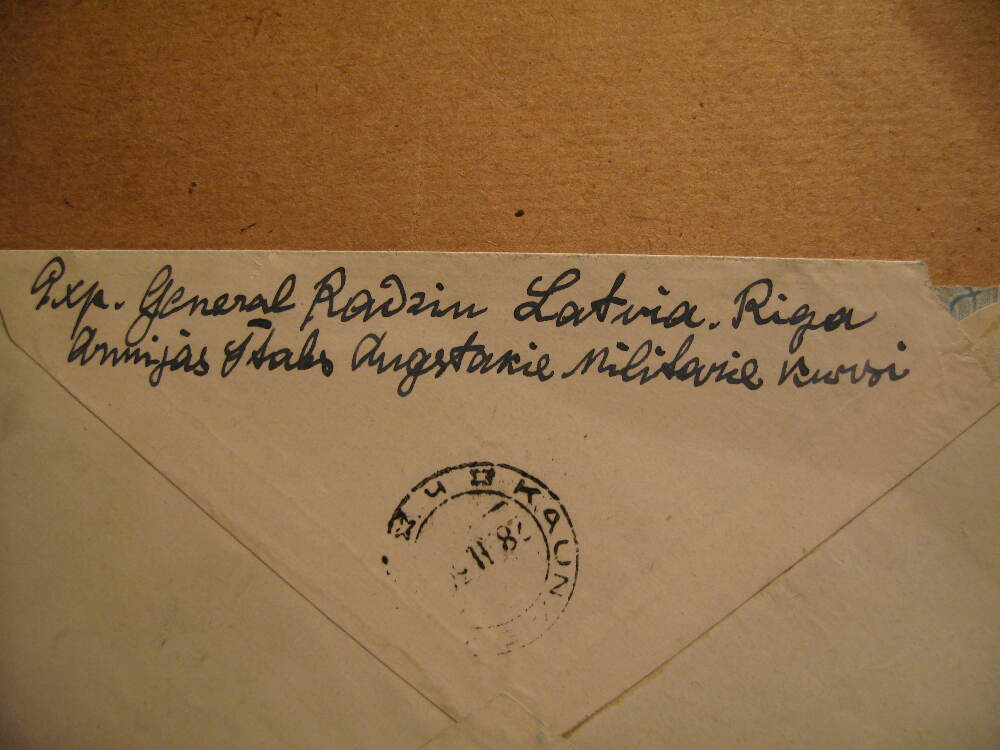 Exp. General Radzin Latvia. Riga
Armijas Štabs Augstakie Militarie kursi
4 KAUN
II 8